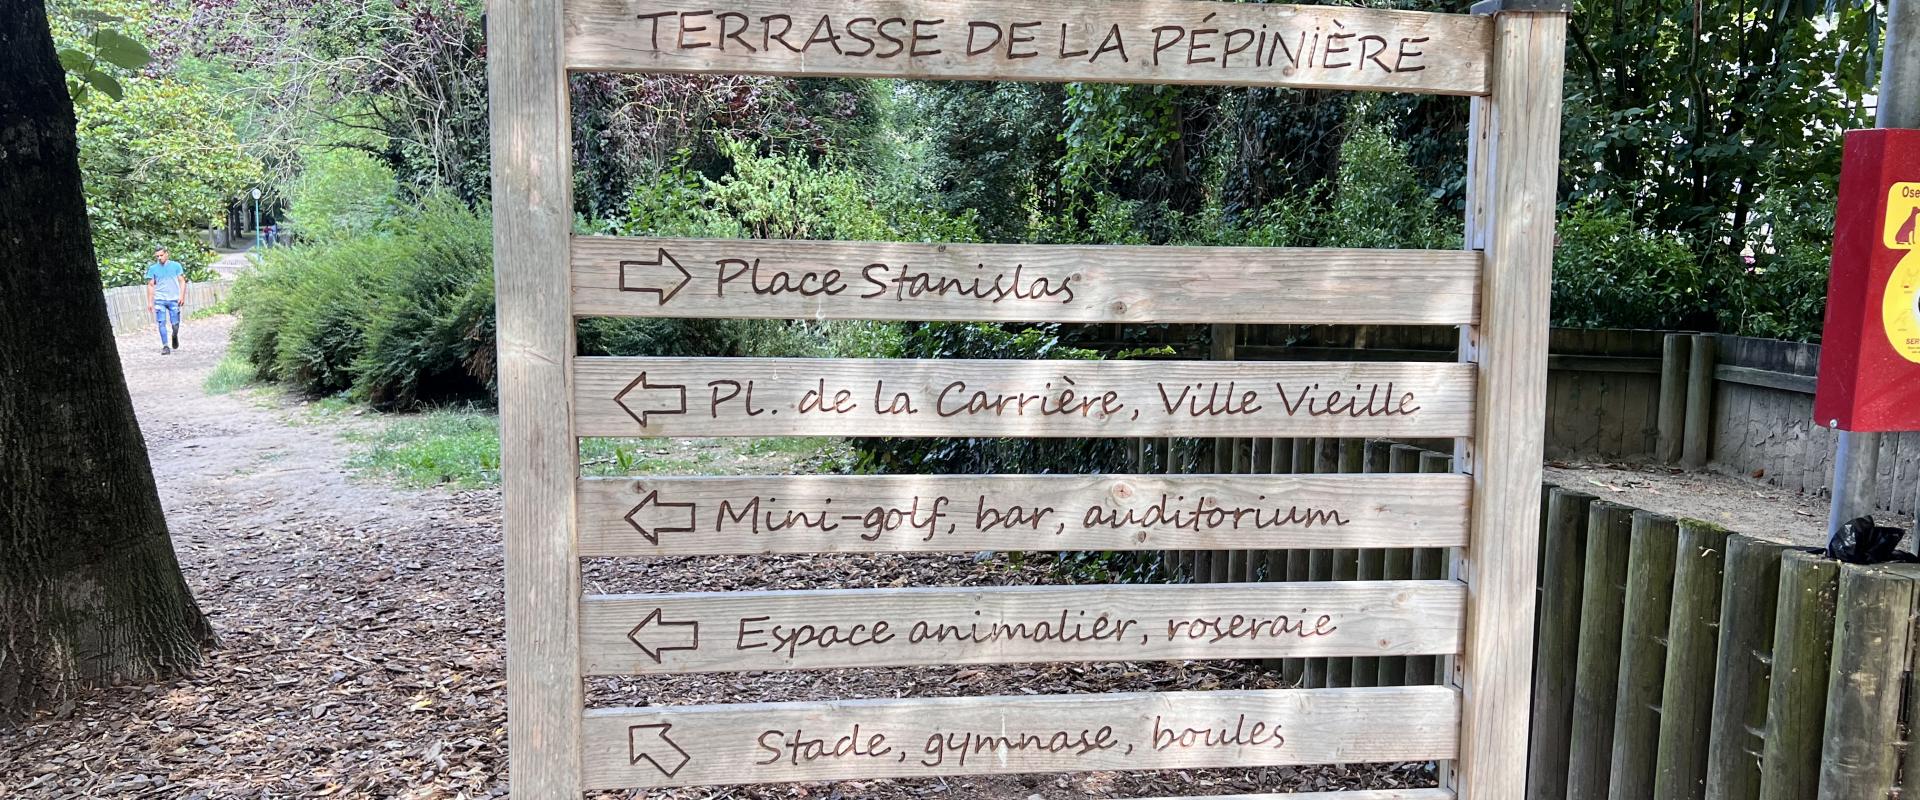 TERRASSE DE LA PÉPINIÈRE
Place Stanislas
Pl. de la Carrière, Ville Vieille
Mini-golf, bar, auditorium
Espace animalier, roseraie
Stade, gymnase, boules